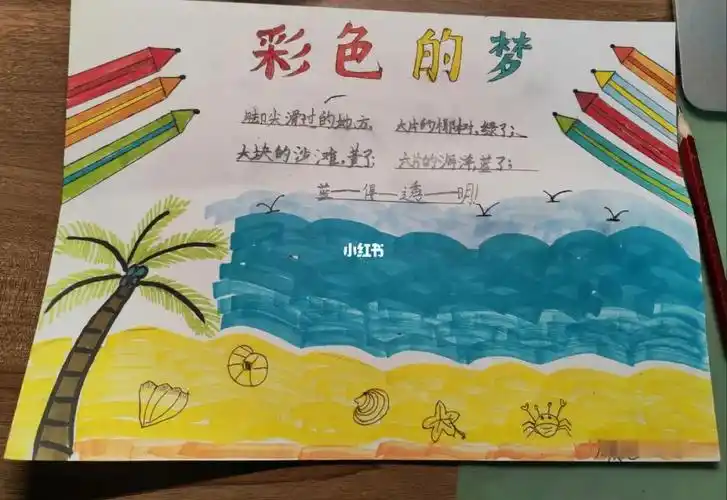 彩色的梦
脚尖滑过的地方, 大片的椰树,绿了;
大块的沙滩,黄了; 大片的海洋,蓝了;
蓝——得——透——明!
小红书